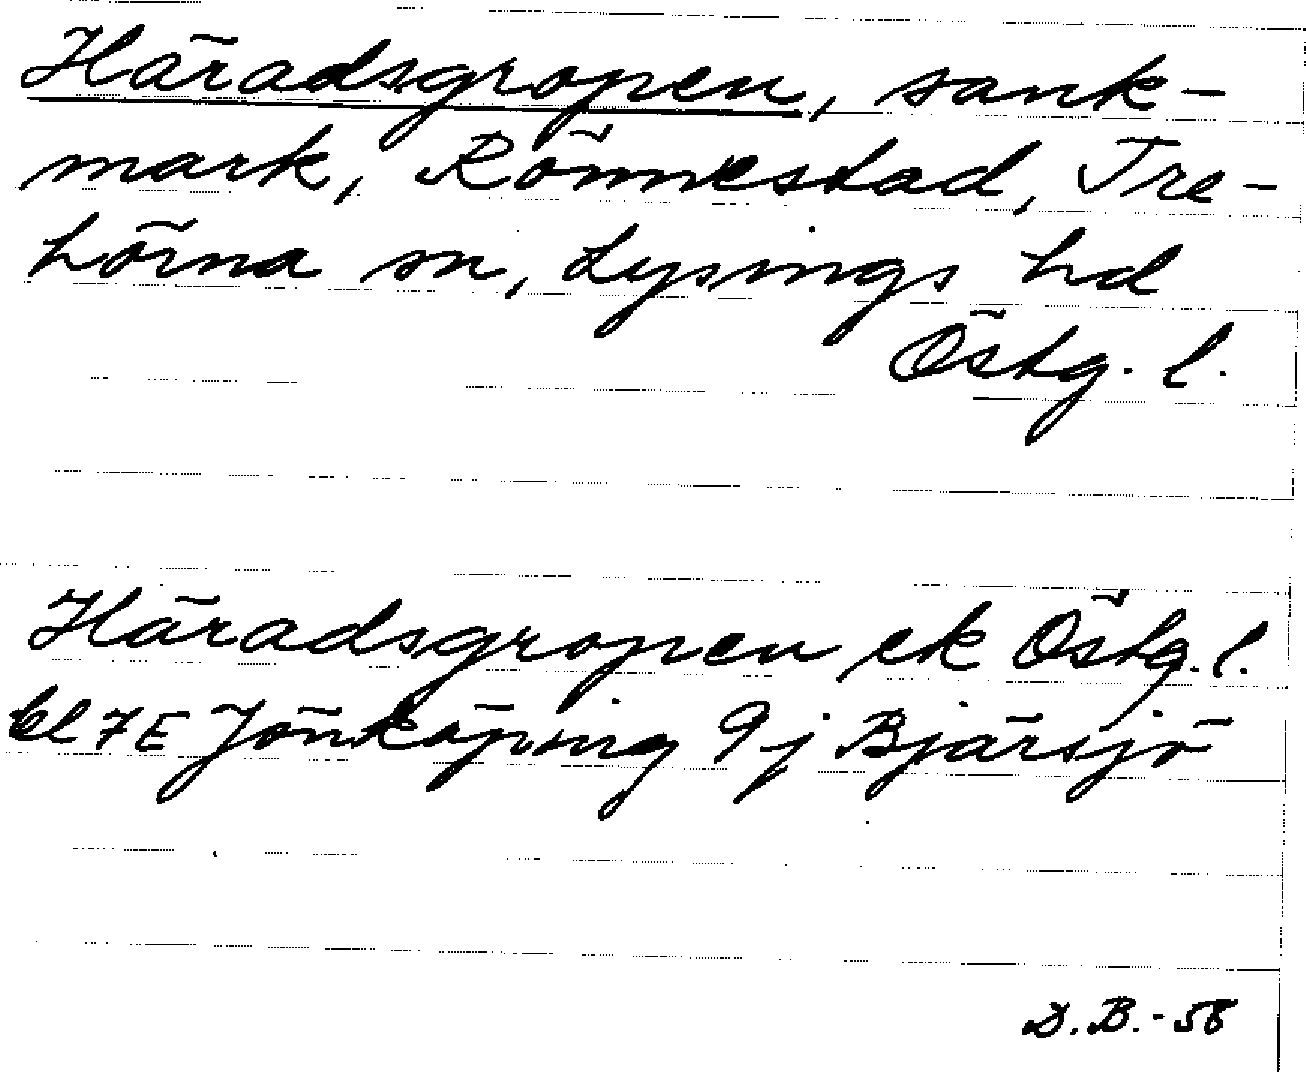 Häradsgropen, sank-
mark, Rönnestad, Tre-
hörna sn, Lysings hd
Östg. l.
Häradsgropen ek Östg. l.
bl 7E Jönköping 9j Bjärsjö
D.B.-58